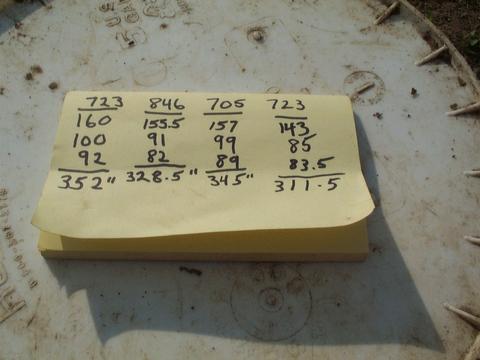 723 846 705 723
160 155.5 157 143
100 91 99 85
92 82 89 83.5
352" 328.5" 345" 311.5